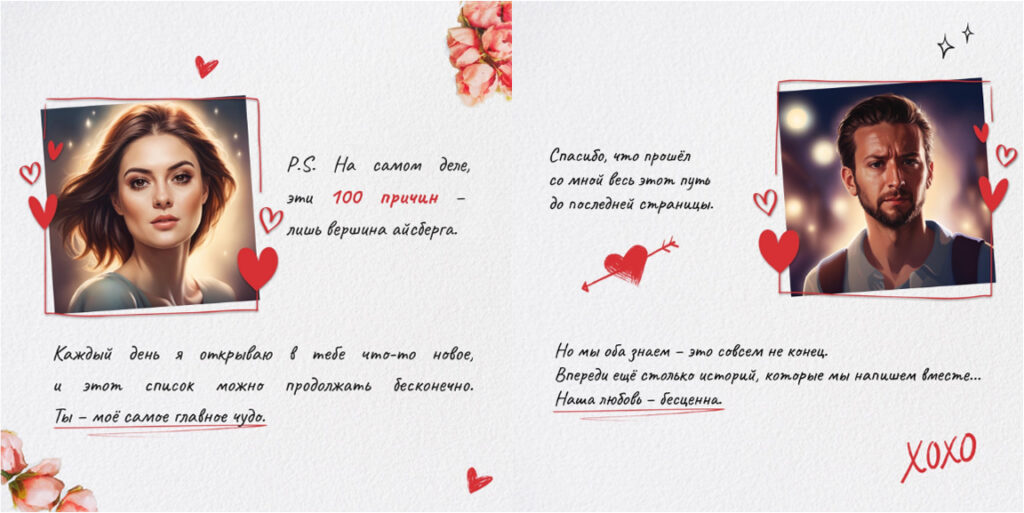 P.S. На самом деле,
эти 100 причин –
лишь вершина айсберга.
Каждый день я открываю в тебе что-то новое,
и этот список можно продолжать бесконечно.
Ты – моё самое главное чудо.
Спасибо, что прошёл
со мной весь этот путь
до последней страницы.
Но мы оба знаем – это совсем не конец.
Впереди ещё столько историй, которые мы напишем вместе...
Наша любовь – бесценна.
XOXO